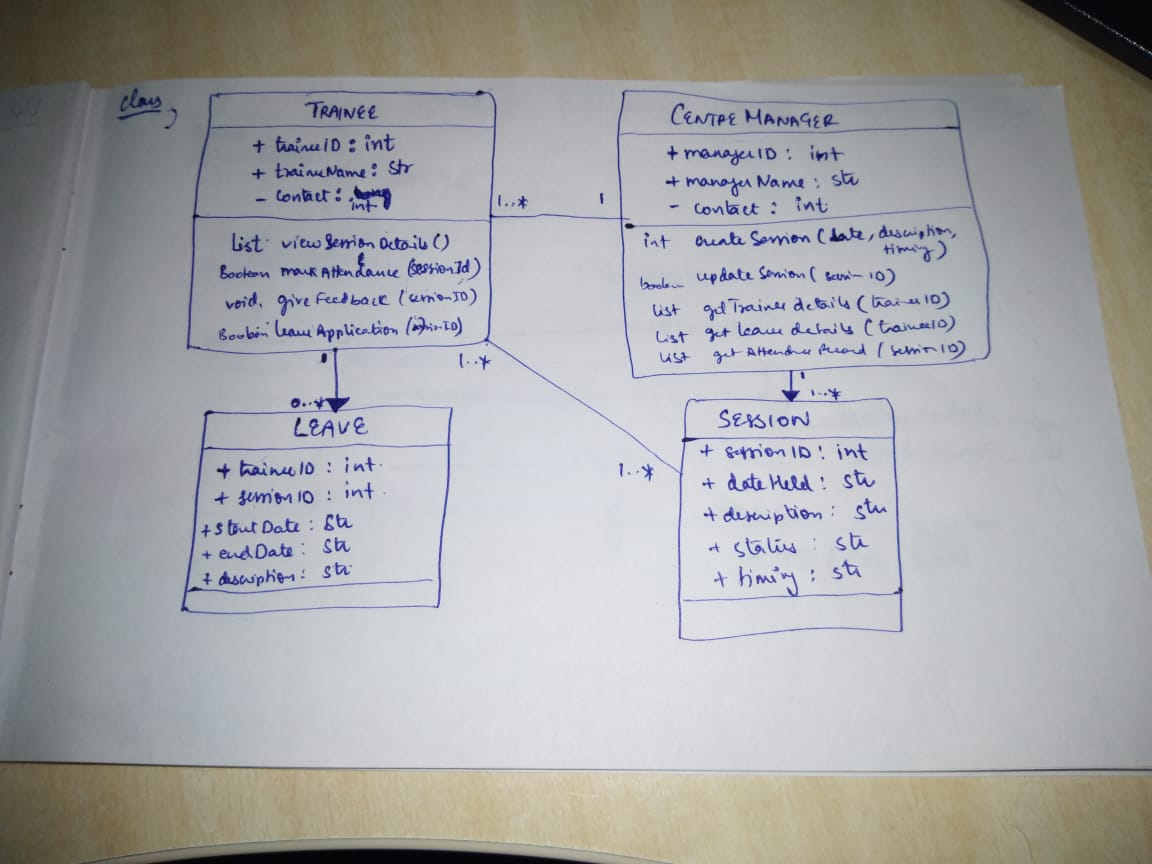 Class
TRAINEE
+ traineeID : int
+ traineeName : Str
- Contact : int
List viewSessionDetails()
Boolean markAttendance (SessionId)
void giveFeedback (sessionID)
Boolean LeaveApplication
1..*
1
CENTRE MANAGER
+ managerID : int
+ managerName : str
- contact : int
int createSession (date, description,
timing)
boolean updateSession (session ID)
List getTrainee details (traineeID)
List get leave details (traineeID)
List get Attendance Record (sessionID)
1
0..*
1..*
1..*
1
1..*
LEAVE
+ traineeID : int
+ sessionID : int
+ startDate : Str
+ endDate : Str
+ description : Str
SESSION
+ sessionID : int
+ dateHeld : str
+ description : str
+ status : str
+ timing : str